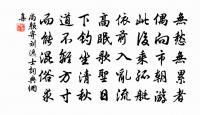 無愁無累者
偶向市朝游
此後乘孤艇
依前入亂流
高眠歌聖日
下釣坐清秋
道不離方寸
而能混俗求
尚顏寄劉逸士詞典網
集